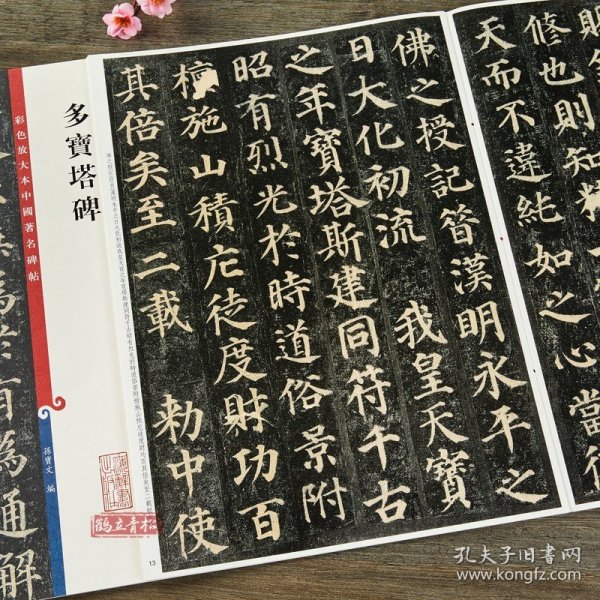 修也則知精
天而不違純如之心當
佛之授記昔漢明永平之
日大化初流 我皇天寶
之年寶塔斯建同符千古
昭有烈光於時道俗景附
檀施山積庀徒度財功百
其倍矣至二載 勅中使
13
多寶塔碑
彩色放大本中國著名碑帖
孫寶文 編
為於有為通解
鶴立青松
孔夫子旧书网
www.kongfz.com